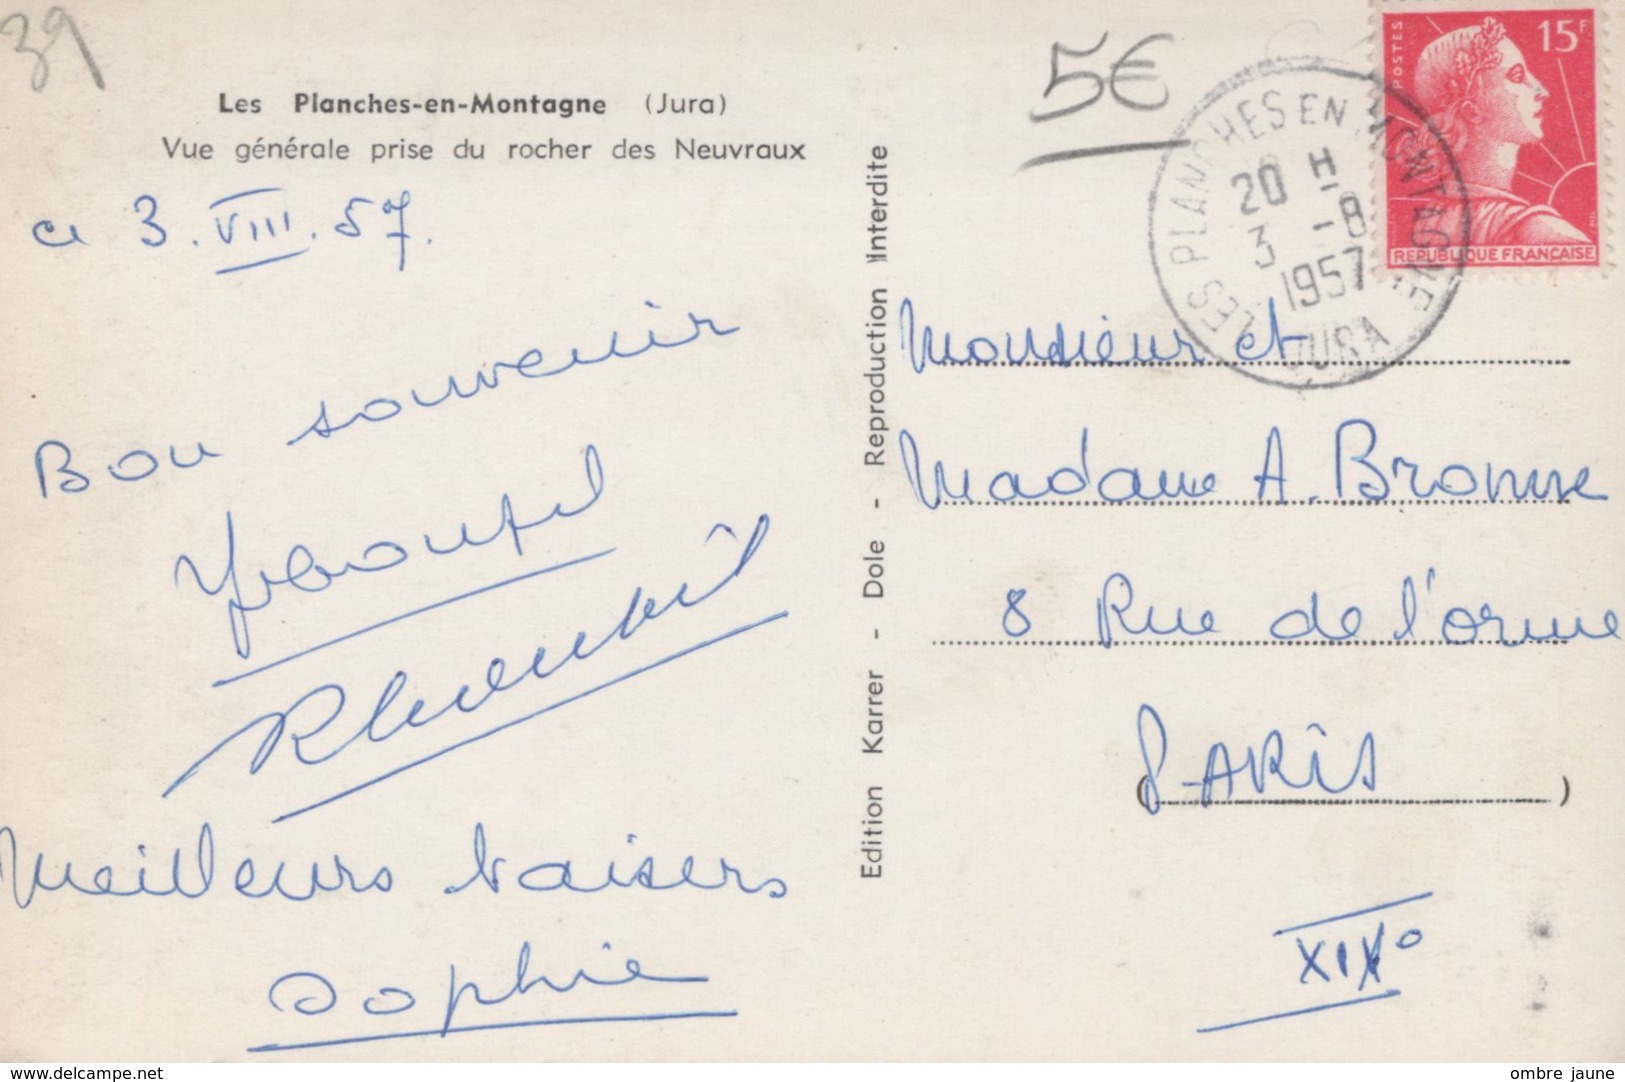 39
Les Planches-en-Montagne (Jura)
Vue générale prise du rocher des Neuvraux
ce 3. VIII. 57.
Bon souvenir
Meilleurs baisers
Sophie
Edition Karrer - Dole - Reproduction Interdite
5€
LES PLANCHES EN MONTAGNE
20 H
3 -8
1957
JURA
POSTES
15F
REPUBLIQUE FRANÇAISE
Monsieur et
Madame A. Bronne
8 Rue de l'orme
(PARIS)
XIXº
www.delcampe.net
ombre jaune